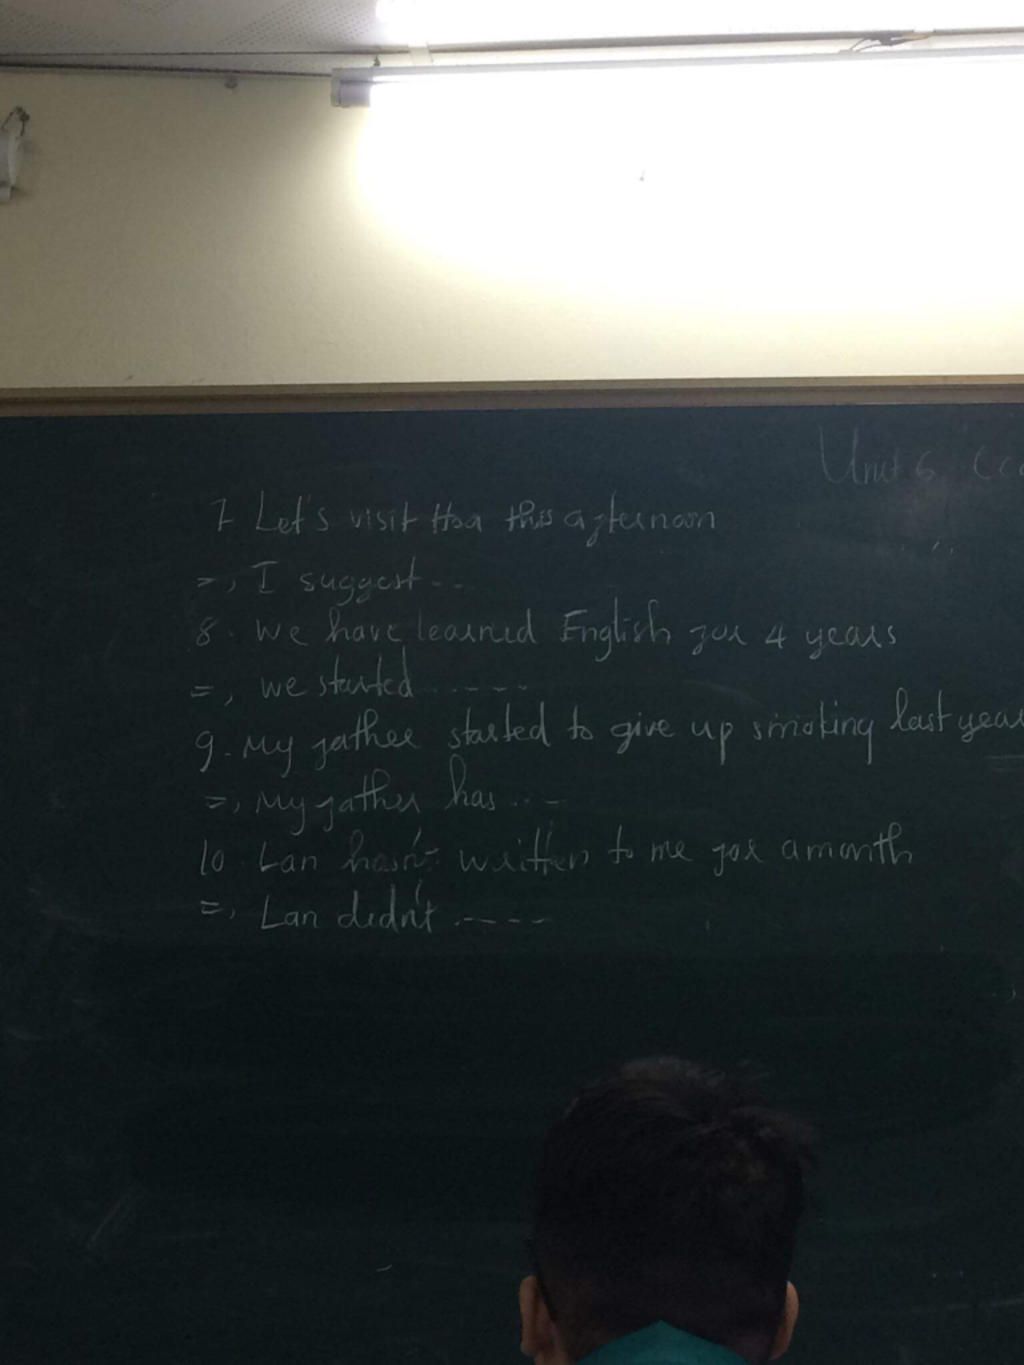 Unit 6
7 Let's visit Hoa this afternoon
=, I suggest...
8. We have learned English for 4 years
=, we started ......
9. My father started to give up smoking last year
=, My father has ....
10. Lan hasn't written to me for a month
=, Lan didn't .----